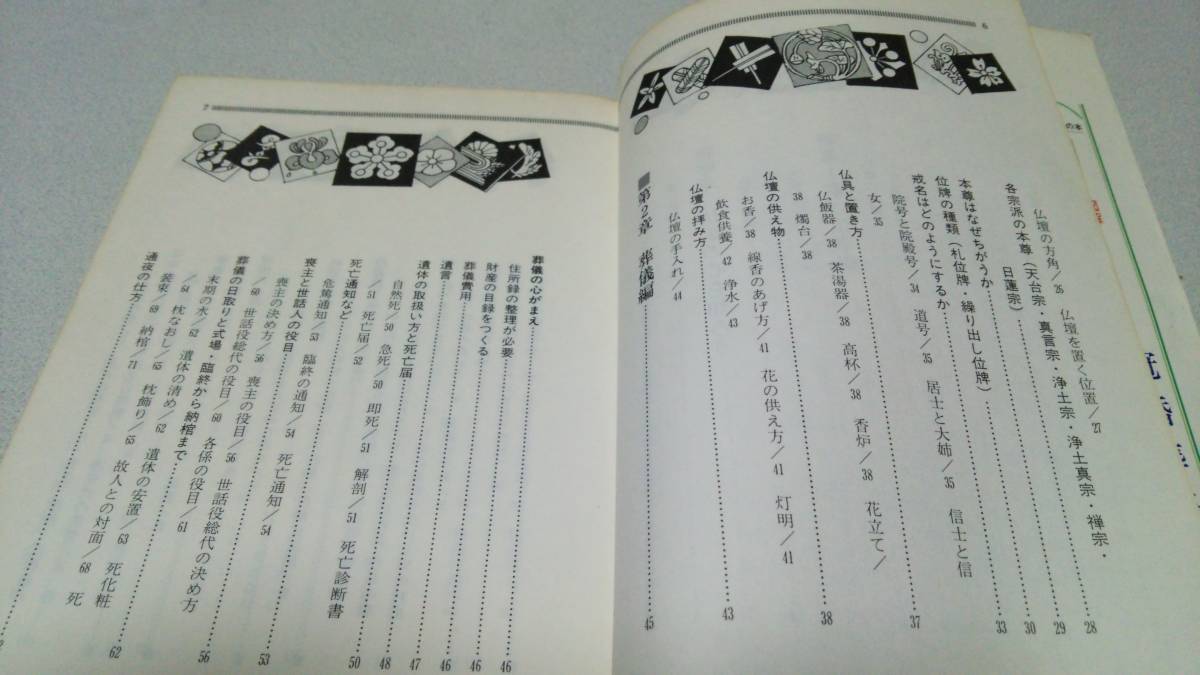 6
仏壇の方角／26　仏壇を置く位置／27
各宗派の本尊（天台宗・真言宗・浄土宗・浄土真宗・禅宗・……28
日蓮宗）……29
本尊はなぜちがうか……30
位牌の種類（札位牌・繰り出し位牌）……33
戒名はどのようにするか
院号と院殿号／34　道号／35　居士と大姉／35　信士と信
女／35……37
仏具と置き方
仏飯器／38　茶湯器／38　高杯／38　香炉／38　花立て／
38　燭台／38……38
仏壇の供え物
お香／38　線香のあげ方／41　花の供え方／41　灯明／41
飲食供養／42　浄水／43……43
仏壇の拝み方
仏壇の手入れ／44
■第2章　葬儀編……45
7
葬儀の心がまえ……46
住所録の整理が必要……46
財産の目録をつくる……46
葬儀費用……46
遺言……47
遺体の取扱い方と死亡届……48
自然死／50　急死／50　即死／51　解剖／51　死亡診断書
／51　死亡届／52……50
死亡通知など
危篤通知／53　臨終の通知／54　死亡通知／54……53
喪主と世話人の役目
喪主の決め方／56　喪主の役目／56　世話役総代の決め方
／60　世話役総代の役目／60　各係の役目／61……56
葬儀の日取りと式場・臨終から納棺まで……62
末期の水／62　遺体の清め／62　遺体の安置／63　死化粧
／64　枕なおし／65　枕飾り／65　故人との対面／68　死
装束／69　納棺／71
通夜の仕方……
の本